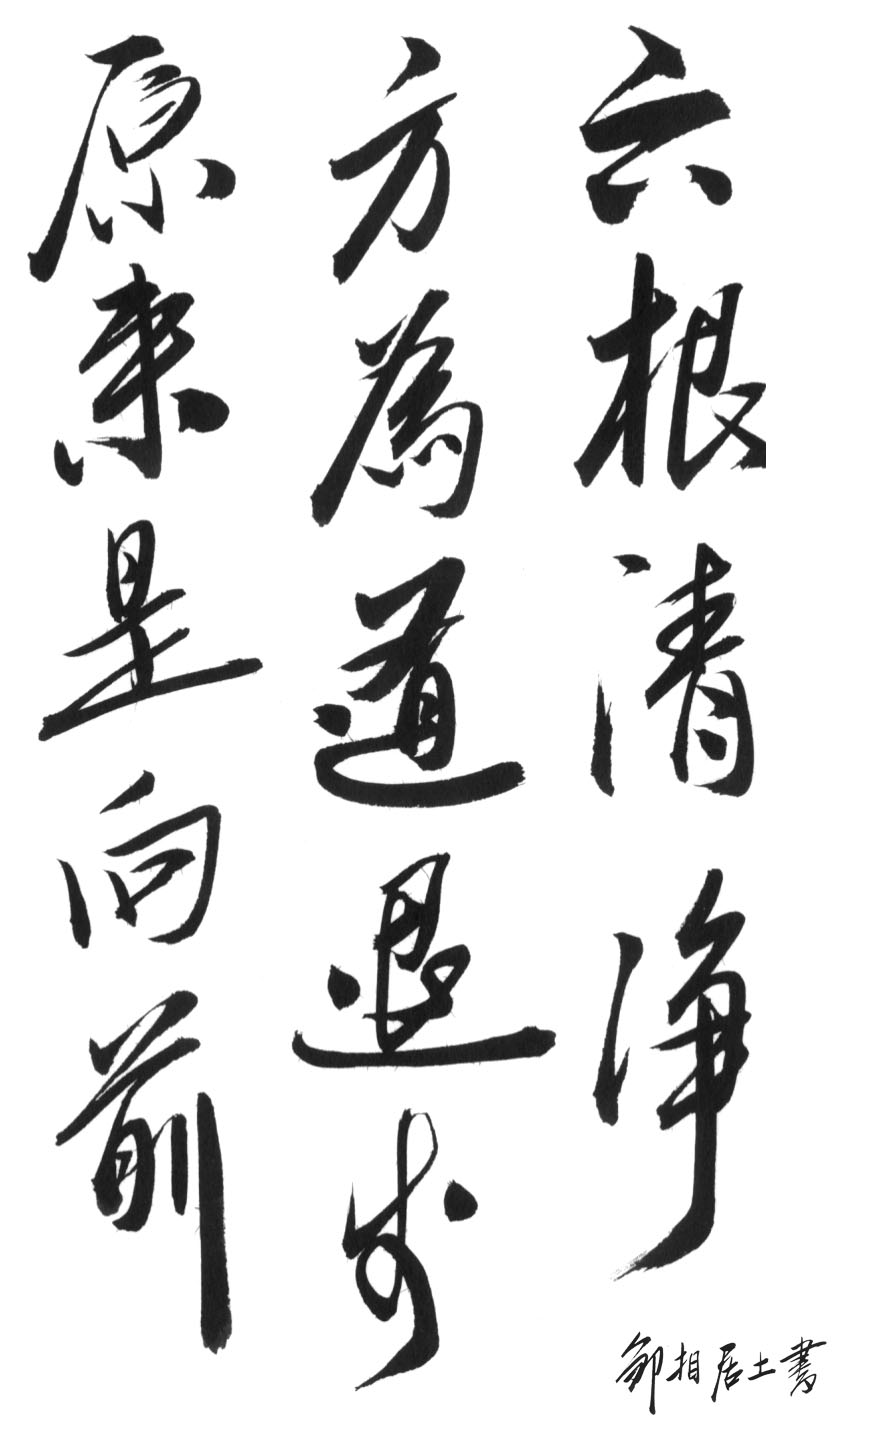 六根清净
方為道退步
原来是向前
邹相居士書